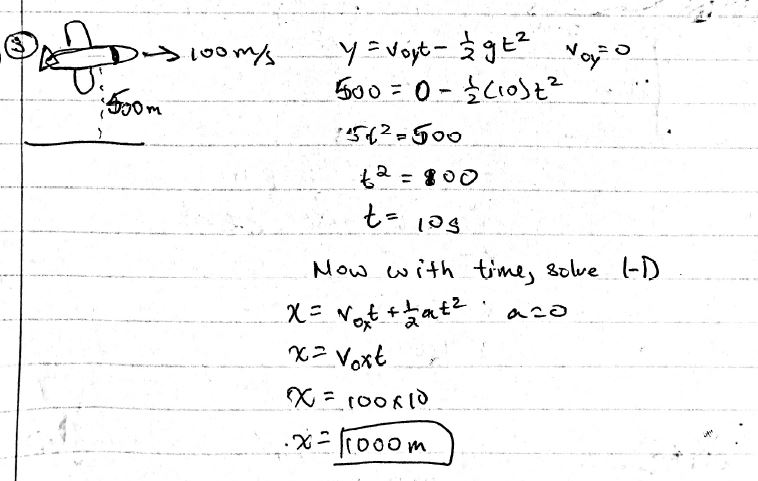 3
100 m/s
500m
y = v₀yt - ½gt² v₀y = 0
500 = 0 - ½(10)t²
5t² = 500
t² = 100
t = 10s
Now with time, solve
x = v₀xt + ½at² a = 0
x = v₀xt
x = 100 x 10
x = 1000 m